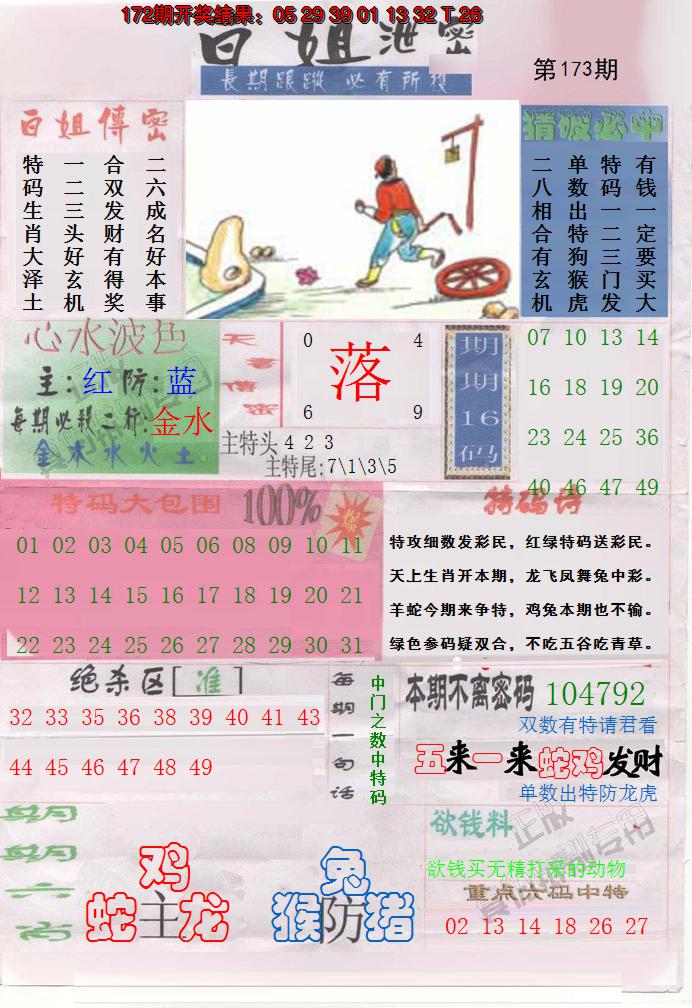 172期开奖结果：05 29 39 01 13 32 T 26
白姐泄密
第173期
長期跟蹤 必有所獲
白姐傳密
二六成名好本事
合双发财有得奖
一二三头好玄机
特码生肖大泽土
猜波必中
有钱一定要买大
特码一二三门发
单数出特狗猴虎
二八相合有玄机
心水波色
主:红防:蓝
每期必殺二行:金水
金木水火土
天書僖密
0 4
落
6 9
主特头4 2 3
主特尾:7\1\3\5
期期16码
07 10 13 14
16 18 19 20
23 24 25 36
40 46 47 49
特码大包围 100%
01 02 03 04 05 06 08 09 10 11
12 13 14 15 16 17 18 19 20 21
22 23 24 25 26 27 28 29 30 31
特码诗
特攻细数发彩民，红绿特码送彩民。
天上生肖开本期，龙飞凤舞兔中彩。
羊蛇今期来争特，鸡兔本期也不输。
绿色参码疑双合，不吃五谷吃青草。
绝杀区[准]
32 33 35 36 38 39 40 41 43
44 45 46 47 48 49
每期一句话
中门之数中特码
本期不离密码 104792
双数有特请君看
五来一来蛇鸡发财
单数出特防龙虎
每期
每期
六肖
鸡
蛇主龙
兔
猴防猪
欲钱料
欲钱买无精打采的动物
重点六码中特
02 13 14 18 26 27